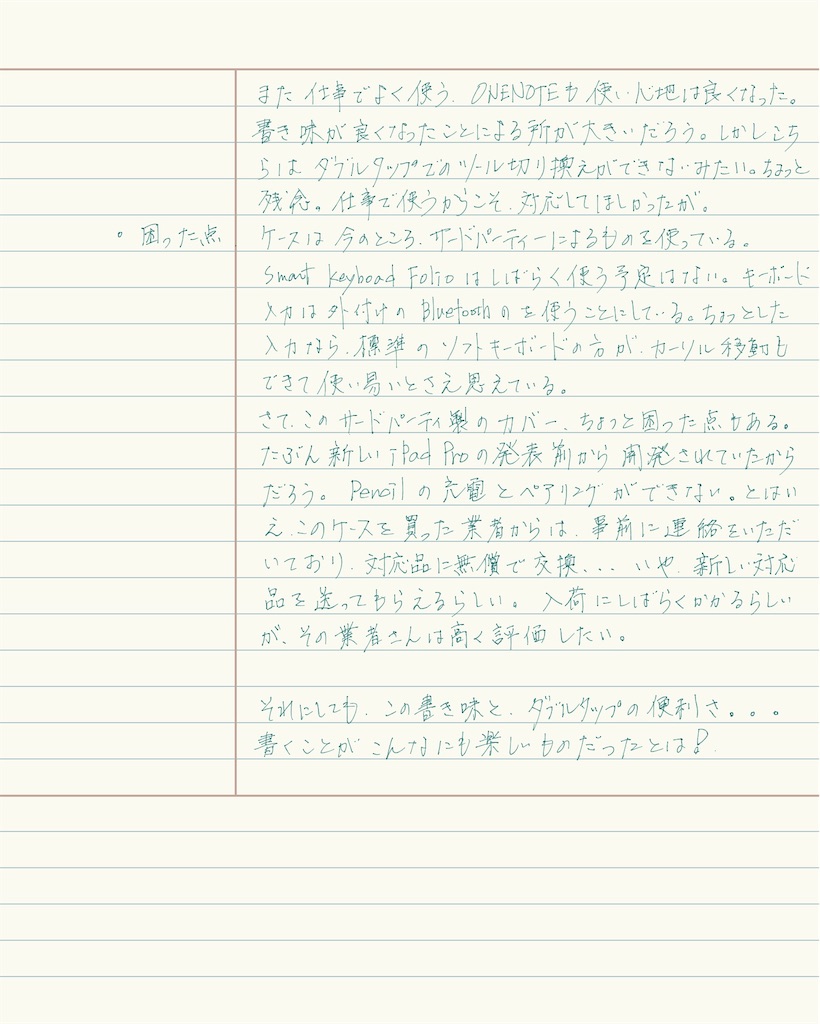 また 仕事でよく使う、ONENOTEも使い心地は良くなった。
書き味が良くなったことによる所が大きいだろう。しかしこち
らは ダブルタップでのツール切り換えができないみたい。ちょっと
残念。仕事で使うからこそ、対応してほしかったが。
。困った点
ケースは今のところ、サードパーティーによるものを使っている。
Smart Keyboad Folioはしばらく使う予定はない。キーボード
入力は外付けの Bluetoothのを使うことにしている。ちょっとした
入力なら、標準のソフトキーボードの方が、カーソル移動も
できて使い易いとさえ思えている。
さて、このサードパーティ製のカバー、ちょっと困った点もある。
たぶん新しいiPad Proの発表前から開発されていたから
だろう。Pencilの充電とペアリングができない。とはい
え、このケースを買った業者からは、事前に連絡をいただ
いており、対応品に無償で交換...いや、新しい対応
品を送ってもらえるらしい。入荷にしばらくかかるらしい
が、その業者さんは高く評価したい。
それにしても、この書き味と、ダブルタップの便利さ。。。
書くことがこんなにも楽しいものだったとは!